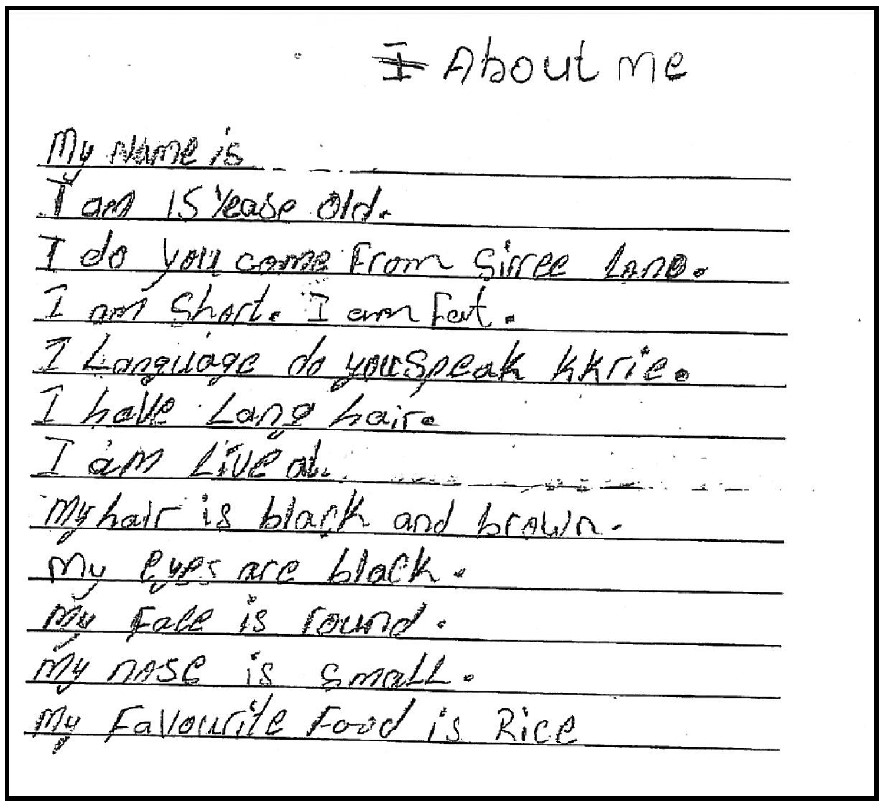 I About me
My Name is
I am 15 Yease old.
I do you come From Sirree Land.
I am Short. I am Fat.
I Language do you Speak kkrie.
I have Lang hair.
I am Live at.
My hair is black and brown.
My eyes are black.
My Face is round.
My nose is small.
My Favourite Food is Rice